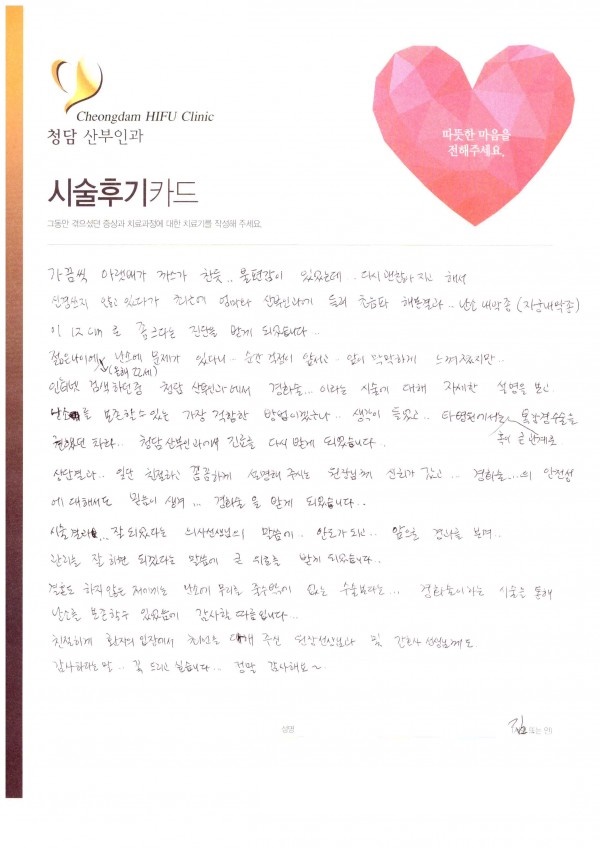 Cheongdam HIFU Clinic
청담 산부인과
따뜻한 마음을
전해주세요.
시술후기카드
그동안 겪으셨던 증상과 치료과정에 대한 치료기를 작성해 주세요.
가끔씩 아랫배가 까스가 찬듯.. 불편감이 있었는데.. 다시 괜찮아 지고 해서
신경쓰지 않고 있다가 최근에 엄마와 산부인과에 들려 초음파 해본결과.. 난소 내막종 (자궁내막종)
이 12cm 로 좀 크다는 진단을 받게 되었습니다..
젊은나이에 (올해 22세) 난소에 문제가 있다니.. 순간 걱정이 앞서고.. 앞이 막막하게 느껴졌지만..
인터넷 검색하던중 청담 산부인과에서 경화술... 이라는 시술에 대해 자세한 설명을 보고.
난소를 보존할수 있는 가장 적합한 방법이겠구나.. 생각이 들었고.. 타병원에서는 혹이 큰 관계로 복강경수술을
권했던 터라.. 청담산부인과에서 진료를 다시 받게 되었습니다..
상담결과.. 일단 친절하고 꼼꼼하게 설명해 주시는 원장님께 신뢰가 갔고... 경화술...의 안전성
에 대해서도 믿음이 생겨... 경화술을 받게 되었습니다..
시술결과... 잘 되었다는 의사선생님의 말씀에.. 안도가 되고.. 앞으로 경과를 보며..
관리를 잘 하면 되겠다는 말씀에 큰 위로를 받게 되었습니다..
결혼도 하지 않은 저에게는 난소에 무리를 줄수밖에 없는 수술보다는... 경화술이라는 시술을 통해
난소를 보존할수 있었음에 감사할 따름입니다..
친절하게 환자의 입장에서 최선을 다해 주신 원장선생님과 팀 간호사 선생님께도
감사하다는 말.. 꼭 드리고 싶습니다... 정말 감사해요~
성명
김 (또는 인)